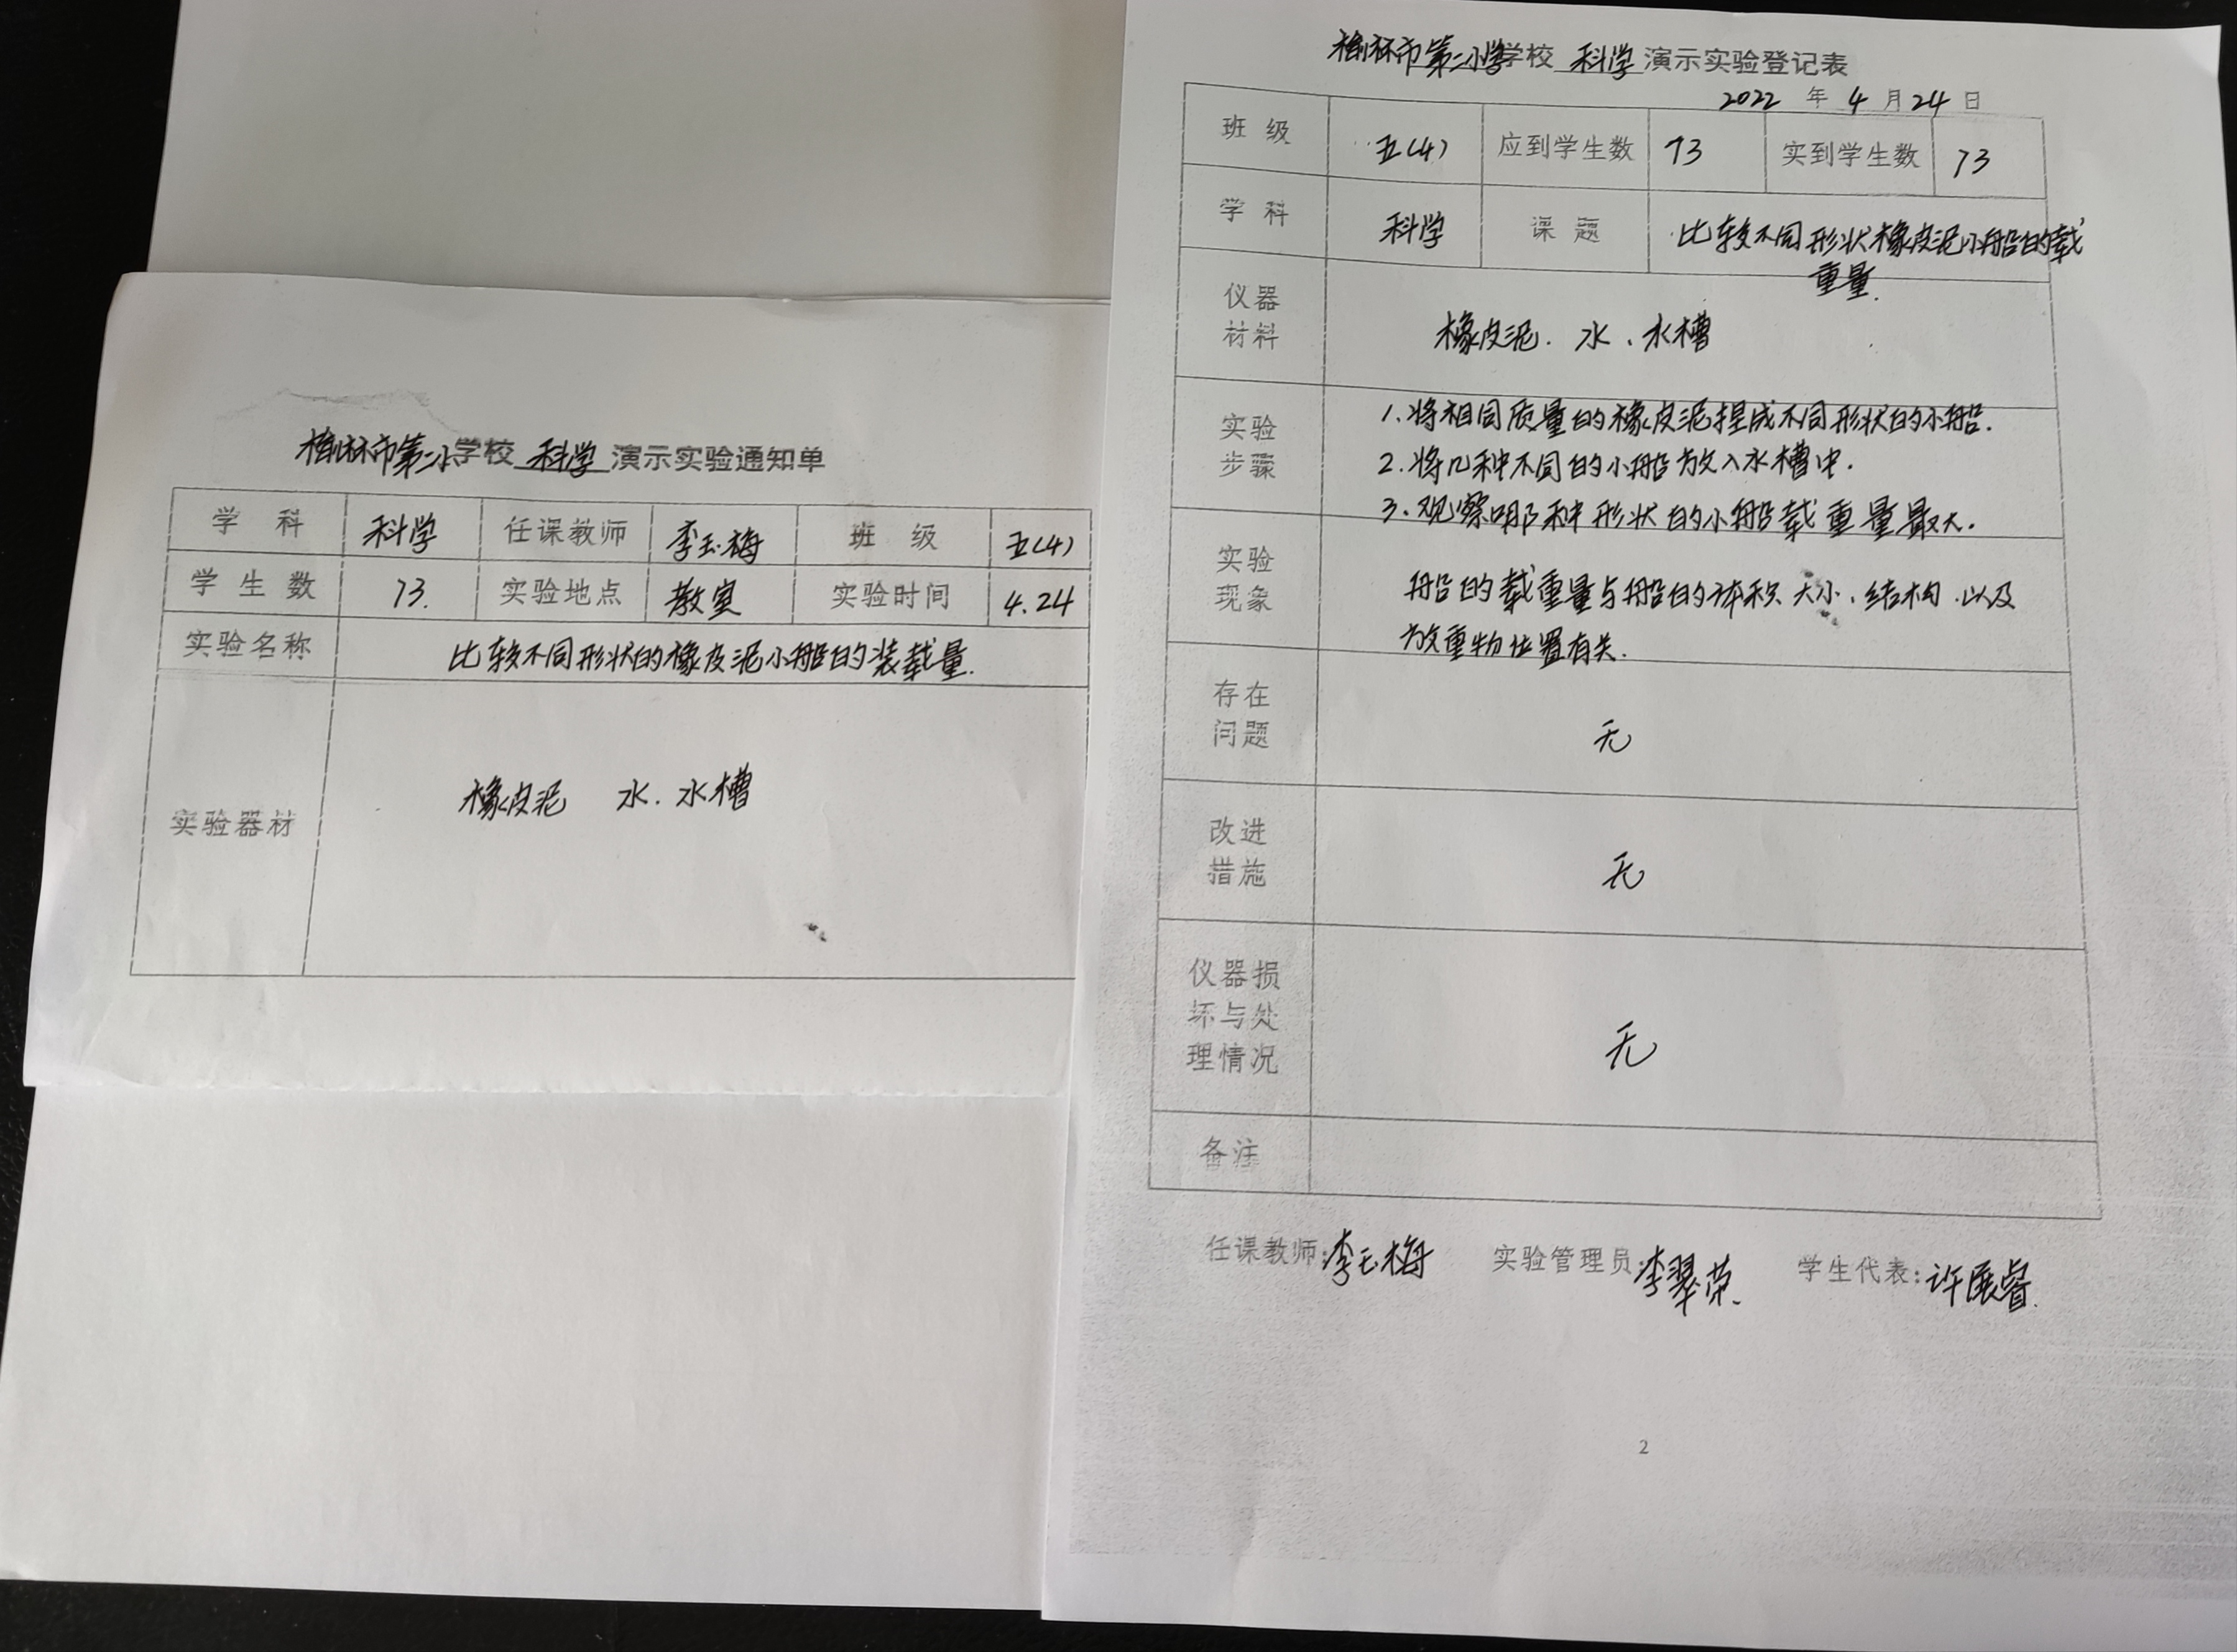 榆林市第二小学校 科学 演示实验通知单
学 科 科学 任课教师 李玉梅 班 级 五(4)
学 生 数 73. 实验地点 教室 实验时间 4.24
实验名称 比较不同形状的橡皮泥小船的装载量.
实验器材 橡皮泥 水. 水槽
榆林市第二小学学校 科学 演示实验登记表
2022 年 4 月 24 日
班 级 五(4) 应到学生数 73 实到学生数 73
学 科 科学 课 题 比较不同形状橡皮泥小船的载
重量.
仪器
材料
橡皮泥. 水、水槽
实验
步骤
1.将相同质量的橡皮泥捏成不同形状的小船.
2.将几种不同的小船放入水槽中.
3.观察哪种形状的小船载重量最大.
实验
现象
船的载重量与船的体积大小、结构 以及
放重物位置有关.
存在
问题
无
改进
措施
无
仪器损
坏与处
理情况
无
备注
任课教师:李玉梅 实验管理员:李翠荣. 学生代表:许展睿.
2